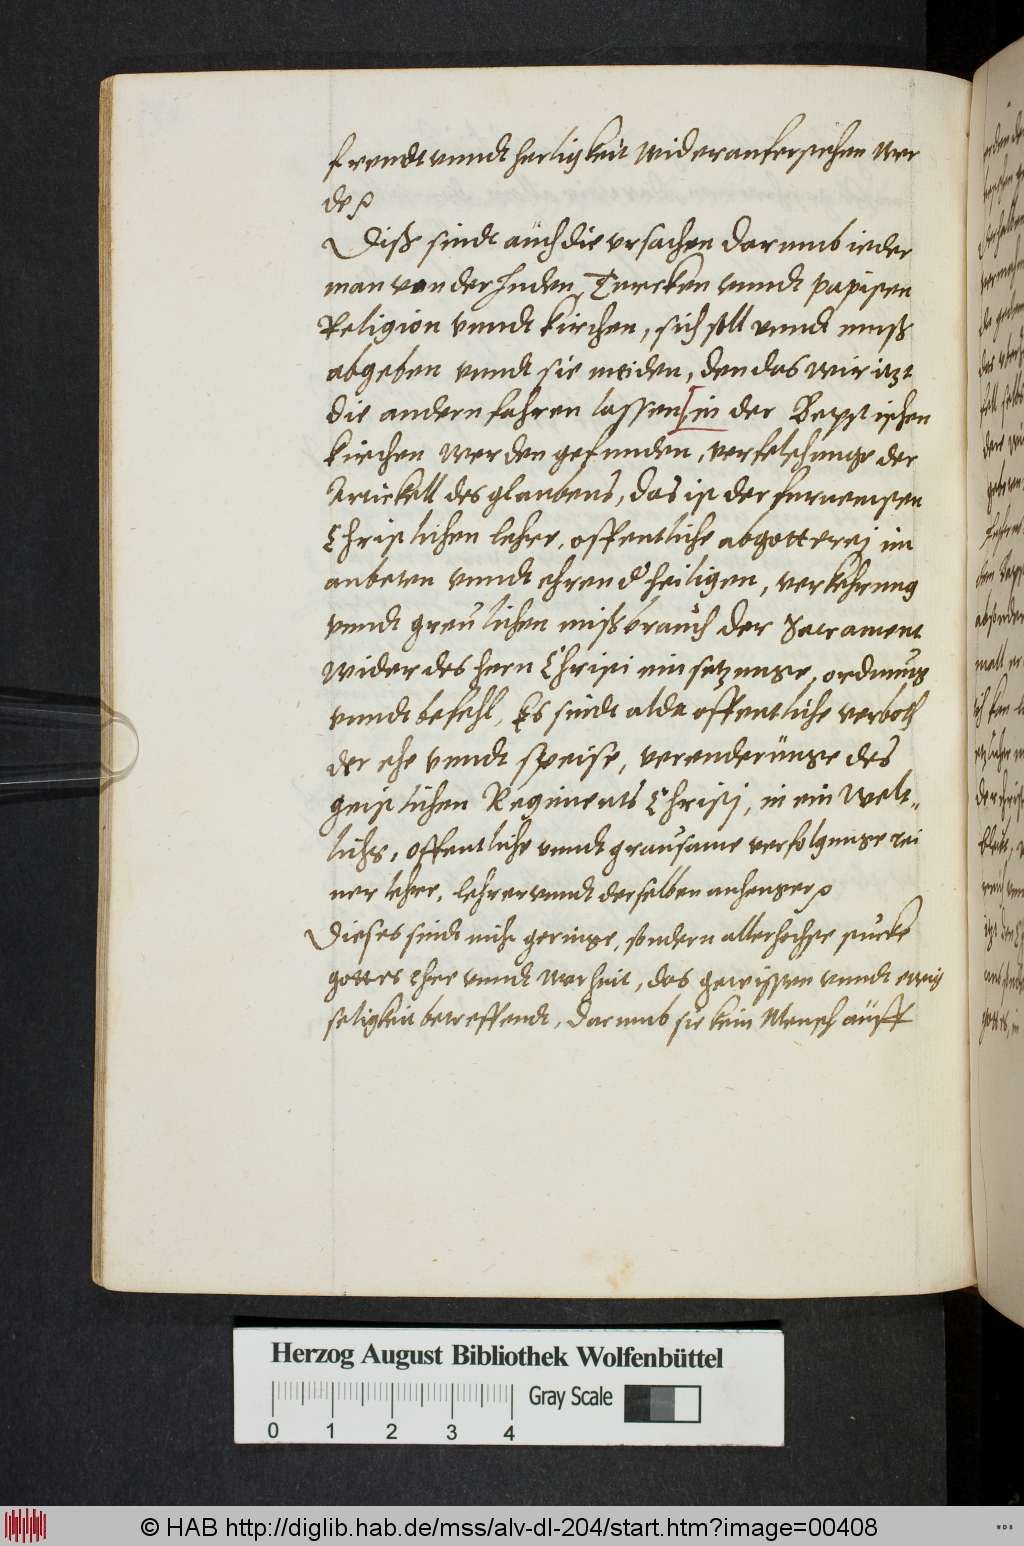 freudt vnndt herligkeit wider aufferstehen wer
de
Diß sindt auch die vrsachen darumb ieder
man von der Juden, Turcken vnndt papisten
Religion vnndt kirchen, sich soll vnndt muß
abgeben vnndt sie meiden, den das wir itzt
die andern fahren lassen in der Bepstischen
kirchen werden gefunden, verfelschunge der
Artickell des glaubens, das ist der furnemsten
Christlichen lehre, offentliche abgotterej im
anbeten vnndt ehren d' heiligen, verkehrung
vnndt greulichen mißbrauch der Sacrament
wider des hern Christi einsetzunge, ordnung
vnndt befehl, Es sindt alda offentliche verboth
der ehe vnndt speise, verenderunge des
geistlichen Regiments Christj, in ein welt„
lichs, offentliche vnndt grausame verfolgunge rei
ner lehre, lehrer vnndt derselben anhenger
Dieses sindt nicht geringe, sondern allerhochste stucke
gottes ehre vnndt warheit, das gewissen vnndt ewig
seligkeit betreffendt, darumb sie kein Mensch auff
Herzog August Bibliothek Wolfenbüttel
Gray Scale
0 1 2 3 4
© HAB http://diglib.hab.de/mss/alv-dl-204/start.htm?image=00408